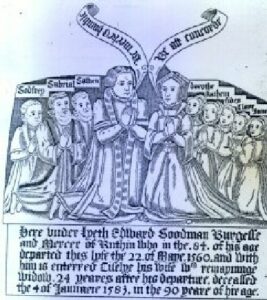 Godfrey Gabriel
Dorothe
Here vnder lyeth Edward Goodman Burgesse
and Mercer of Ruthin who in the .84. of his age
departed this lyfe the 22 of Maye, 1560, and with
him is enterred his wife remayninge
widow, 24 yeares after his departure, deceased
the 4 of Januarie 1583, in the 90 yeare of his age.